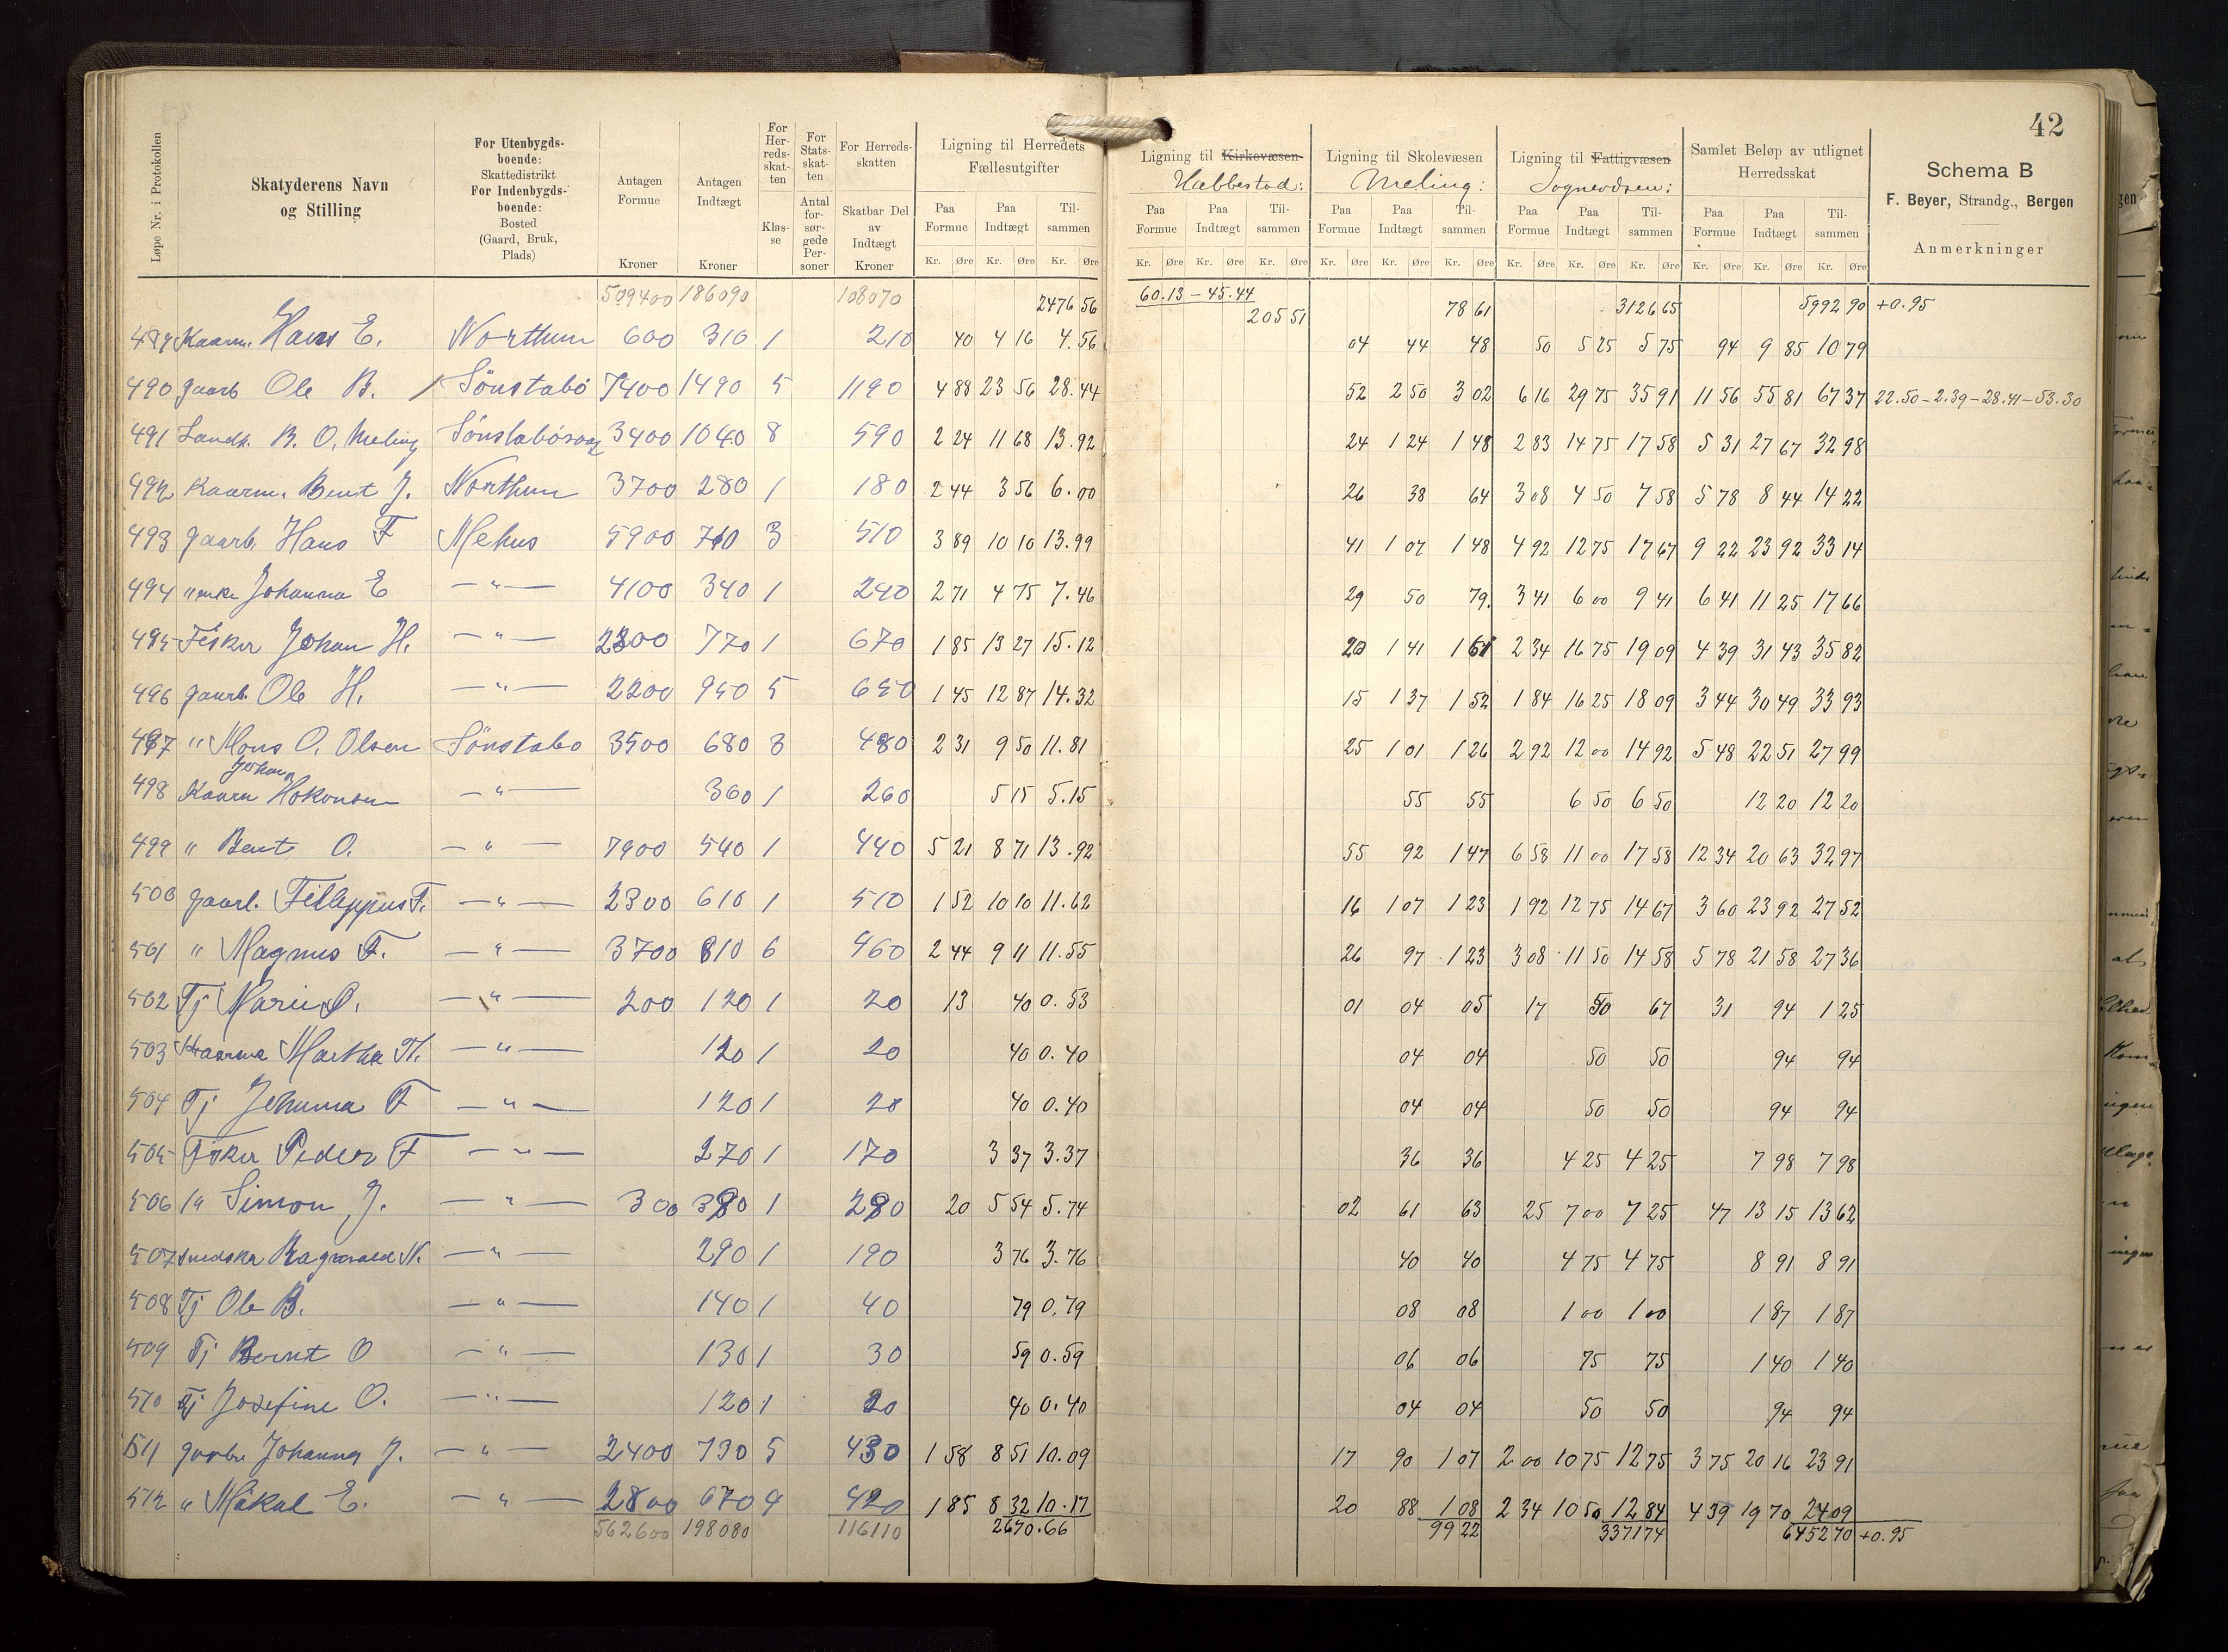 42
Løpe Nr. i Protokollen
Skatyderens Navn og Stilling
For Utenbygds-boende: Skattedistrikt For Indenbygds-boende: Bosted (Gaard, Bruk, Plads)
Antagen Formue Kroner
Antagen Indtægt Kroner
For Her-reds-skat-ten Klas-se
For Stats-skat-ten Antal for-sør-gede Per-soner
For Herreds-skatten Skatbar Del av Indtægt Kroner
Ligning til Herredets Fællesutgifter
Paa Formue Paa Indtægt Til-sammen
Kr. Øre Kr. Øre Kr. Øre
Ligning til Kirkevæsen Hæbbestad:
Paa Formue Paa Indtægt Til-sammen
Kr. Øre Kr. Øre Kr. Øre
Ligning til Skolevæsen Meling:
Paa Formue Paa Indtægt Til-sammen
Kr. Øre Kr. Øre Kr. Øre
Ligning til Fattigvæsen
Paa Formue Paa Indtægt Til-sammen
Kr. Øre Kr. Øre Kr. Øre
Samlet Beløp av utlignet Herredsskat
Paa Formue Paa Indtægt Til-sammen
Kr. Øre Kr. Øre Kr. Øre
Schema B
F. Beyer, Strandg., Bergen
Anmerkninger
509400 186090 108070 2476 56 60.13 – 45.44 205 51 78 61 3126 65 5992 90 +0.95
489 Kaarm. Hans E. Northun 600 310 1 210 40 4 16 4.56 04 44 48 50 5 25 5 75 94 9 85 10 79
490 Gaarb Ole B. Sönstabö 7400 1490 5 1190 4 88 23 56 28.44 52 2 50 3 02 6 16 29 75 35 91 11 56 55 81 67 37 22.50 – 2.39 – 28.41 – 53.30
491 Landh. B. O. Meling Sönstabövaag 3400 1040 8 590 2 24 11 68 13.92 24 1 24 1 48 2 83 14 75 17 58 5 31 27 67 32 98
492 Kaarm. Bent J. Northun 3700 280 1 180 2 44 3 56 6.00 26 38 64 3 08 4 50 7 58 5 78 8 44 14 22
493 Gaarb. Hans F Mehus 5900 710 3 510 3 89 10 10 13.99 41 1 07 1 48 4 92 12 75 17 67 9 22 23 92 33 14
494 "enke Johanna E — " — 4100 340 1 240 2 71 4 75 7.46 29 50 79. 3 41 6 00 9 41 6 41 11 25 17 66
495 Fisker Johan H. — " — 2800 770 1 670 1 85 13 27 15.12 20 1 41 1 61 2 34 16 75 19 09 4 39 31 43 35 82
496 Gaarb. Ole H. — " — 2200 950 5 650 1 45 12 87 14.32 15 1 37 1 52 1 84 16 25 18 09 3 44 30 49 33 93
497 " Mons O. Olsen Sönstabo 3500 680 3 480 2 31 9 50 11.81 25 1 01 1 26 2 92 12 00 14 92 5 48 22 51 27 99
498 Kaarm Johan Hokonsen — " — 360 1 260 5 15 5.15 55 55 6 50 6 50 12 20 12 20
499 " Bent O. — " — 7900 540 1 440 5 21 8 71 13.92 55 92 1 47 6 58 11 00 17 58 12 34 20 63 32 97
500 Gaarb. Fillippus F. — " — 2300 610 1 510 1 52 10 10 11.62 16 1 07 1 23 1 92 12 75 14 67 3 60 23 92 27 52
501 " Magnus F. — " — 3700 810 6 460 2 44 9 11 11.55 26 97 1 23 3 08 11 50 14 58 5 78 21 58 27 36
502 Tj Marie O. — " — 200 120 1 20 13 40 0.53 01 04 05 17 50 67 31 94 1 25
503 Martha — " — 120 1 20 40 0.40 04 04 50 50 94 94
504 Tj Jehanna F — " — 120 1 20 40 0.40 04 04 50 50 94 94
505 Fisker Peder F — " — 270 1 170 3 37 3.37 36 36 4 25 4 25 7 98 7 98
506 " Simon J. — " — 300 380 1 280 20 5 54 5.74 02 61 63 25 7 00 7 25 47 13 15 13 62
507 Snedker Ragnvald N. — " — 290 1 190 3 76 3.76 40 40 4 75 4 75 8 91 8 91
508 Tj Ole B. — " — 140 1 40 79 0.79 08 08 1 00 1 00 1 87 1 87
509 Tj Bernt O — " — 130 1 30 59 0.59 06 06 75 75 1 40 1 40
510 Tj Josefine O. — " — 120 1 20 40 0.40 04 04 50 50 94 94
511 Johannes J. — " — 2400 730 5 430 1 58 8 51 10.09 17 90 1 07 2 00 10 75 12 75 3 75 20 16 23 91
512 " Mikal E. — " — 2800 670 4 420 1 85 8 32 10.17 20 88 1 08 2 34 10 50 12 84 4 39 19 70 24 09
562600 198080 116110 2670.66 99 22 3371 74 6452 70 +0.95